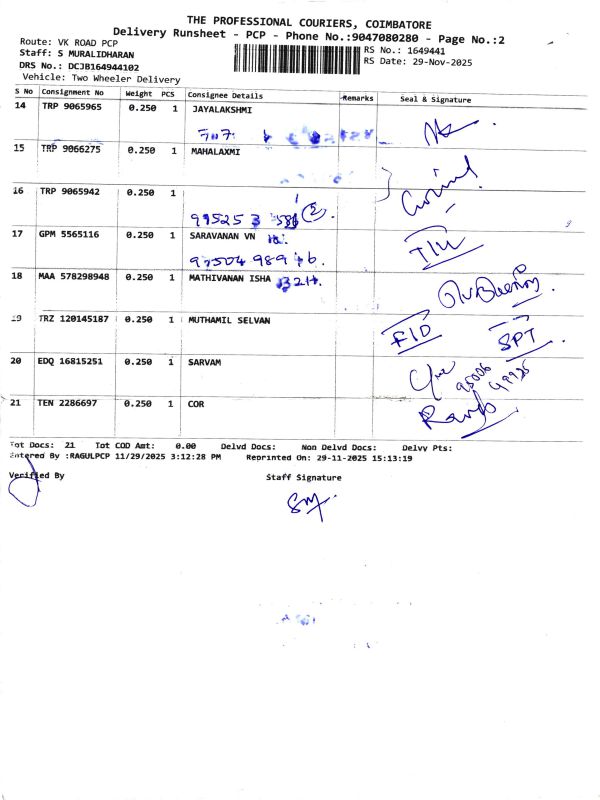 THE PROFESSIONAL COURIERS, COIMBATORE
Delivery Runsheet - PCP - Phone No.:9047080280 - Page No.:2
Route: VK ROAD PCP
Staff: S MURALIDHARAN
DRS No.: DCJB164944102
Vehicle: Two Wheeler Delivery
RS No.: 1649441
RS Date: 29-Nov-2025
S No Consignment No Weight PCS Consignee Details Remarks Seal & Signature
14 TRP 9065965 0.250 1 JAYALAKSHMI
15 TRP 9066275 0.250 1 MAHALAXMI
16 TRP 9065942 0.250 1
17 GPM 5565116 0.250 1 SARAVANAN VN
18 MAA 578298948 0.250 1 MATHIVANAN ISHA
19 TRZ 120145187 0.250 1 MUTHAMIL SELVAN
FID SPT
20 EDQ 16815251 0.250 1 SARVAM
95006
49925
21 TEN 2286697 0.250 1 COR
Tot Docs: 21 Tot COD Amt: 0.00 Delvd Docs: Non Delvd Docs: Delvy Pts:
Entered By :RAGULPCP 11/29/2025 3:12:28 PM Reprinted On: 29-11-2025 15:13:19
Verified By Staff Signature